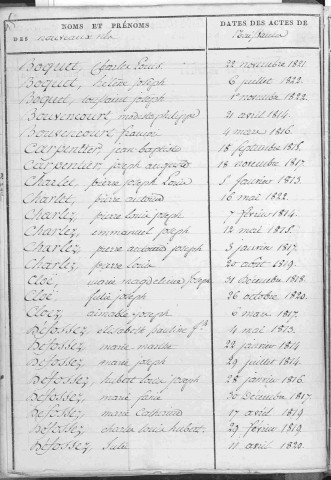 NOMS ET PRÉNOMS
DES nouveaux nés
DATES DES ACTES DE
Naissance
Boquet, Charles Louis 22 novembre 1821.
Boquet, hélène joseph 6 juillet 1822.
Boquet, toussaint joseph 1er novembre 1822.
Bousencourt, modeste philippe 21 avril 1814.
Bousencourt, françois 4 mars 1816.
Carpentier jean baptiste 18 septembre 1815.
Carpentier joseph augustin 18 novembre 1817.
Charlet, pierre joseph Louis 5 fevrier 1813.
Charlet, pierre antoine 16 mai 1822.
Charlez, pierre louis joseph 7 février 1814.
Charlez, emmanuel joseph 12 mai 1815.
Charlez, pierre antoine joseph 3 janvier 1817.
Charlez, pierre louis 20 août 1819.
Cloë, marie magdeleine joseph 31 decembre 1818.
Cloë, julie joseph 26 octobre 1820.
Cloez, aimable joseph 6 mars 1817.
Defossez, elisabeth pauline 4 mai 1813.
Defossez, marie 22 janvier 1814
Defossez, marie joseph 29 juillet 1814.
Defossez, hubert louis joseph 28 janvier 1816.
Defossez, marie jane 30 Decembre 1817.
Defossez, marie Catherine 17 avril 1819
Defossez, charles louis hubert. 29 février 1819.
Defossez, Julie 11 avril 1820.